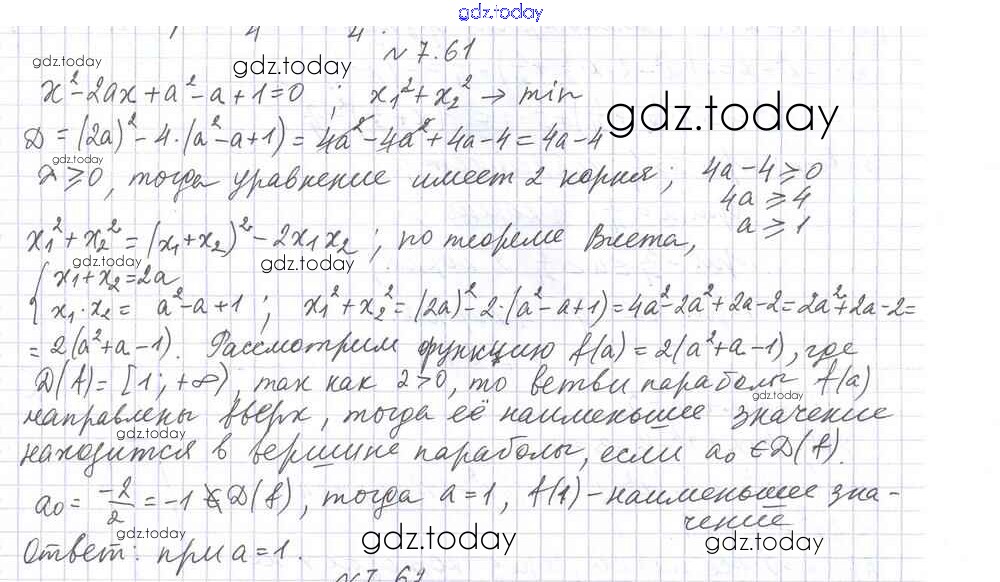 gdz.today
№ 7.61
gdz.today gdz.today
x² - 2ax + a² - a + 1 = 0 ; x₁² + x₂² → min
gdz.today
D = (2a)² - 4·(a² - a + 1) = 4a² - 4a² + 4a - 4 = 4a - 4
gdz.today
D ⩾ 0, тогда уравнение имеет 2 корня; 4a - 4 ⩾ 0
4a ⩾ 4
a ⩾ 1
x₁² + x₂² = (x₁ + x₂)² - 2x₁x₂ ; по теореме Виета,
gdz.today gdz.today
{ x₁ + x₂ = 2a
x₁ · x₂ = a² - a + 1 ; x₁² + x₂² = (2a)² - 2·(a² - a + 1) = 4a² - 2a² + 2a - 2 = 2a² + 2a - 2 =
= 2(a² + a - 1). Рассмотрим функцию f(a) = 2(a² + a - 1), где
D(f) = [1; +∞), так как 2 > 0, то ветви параболы f(a)
gdz.today
направлены вверх, тогда её наименьшее значение
gdz.today
находится в вершине параболы, если a₀ ∈ D(f).
a₀ = -2/2 = -1 ∉ D(f), тогда a = 1, f(1) - наименьшее зна-
чение
gdz.today gdz.today gdz.today
Ответ: при a = 1.